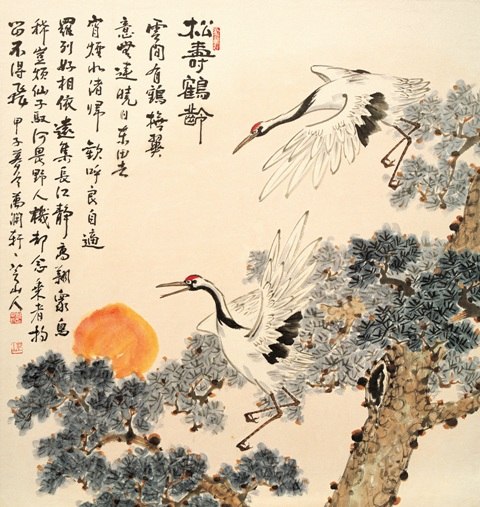 松壽鶴齡
雲間有鶴撫翼
意無違 曉日東田去
宵煙北渚歸 歡呼良自適
羅列好相依 遠集長江靜 高翔衆鳥
稀 豈煩仙子馭 何畏野人機 却念乘者拘
留不得飛 甲子 山人